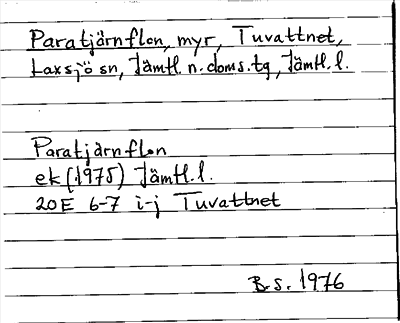 Paratjärnflon, myr, Tuvattnet,
Laxsjö sn, Jämtl. n. doms. tg, Jämtl. l.
Paratjärnflon
ek (1975) Jämtl. l.
20E 6-7 i-j Tuvattnet
B.S. 1976